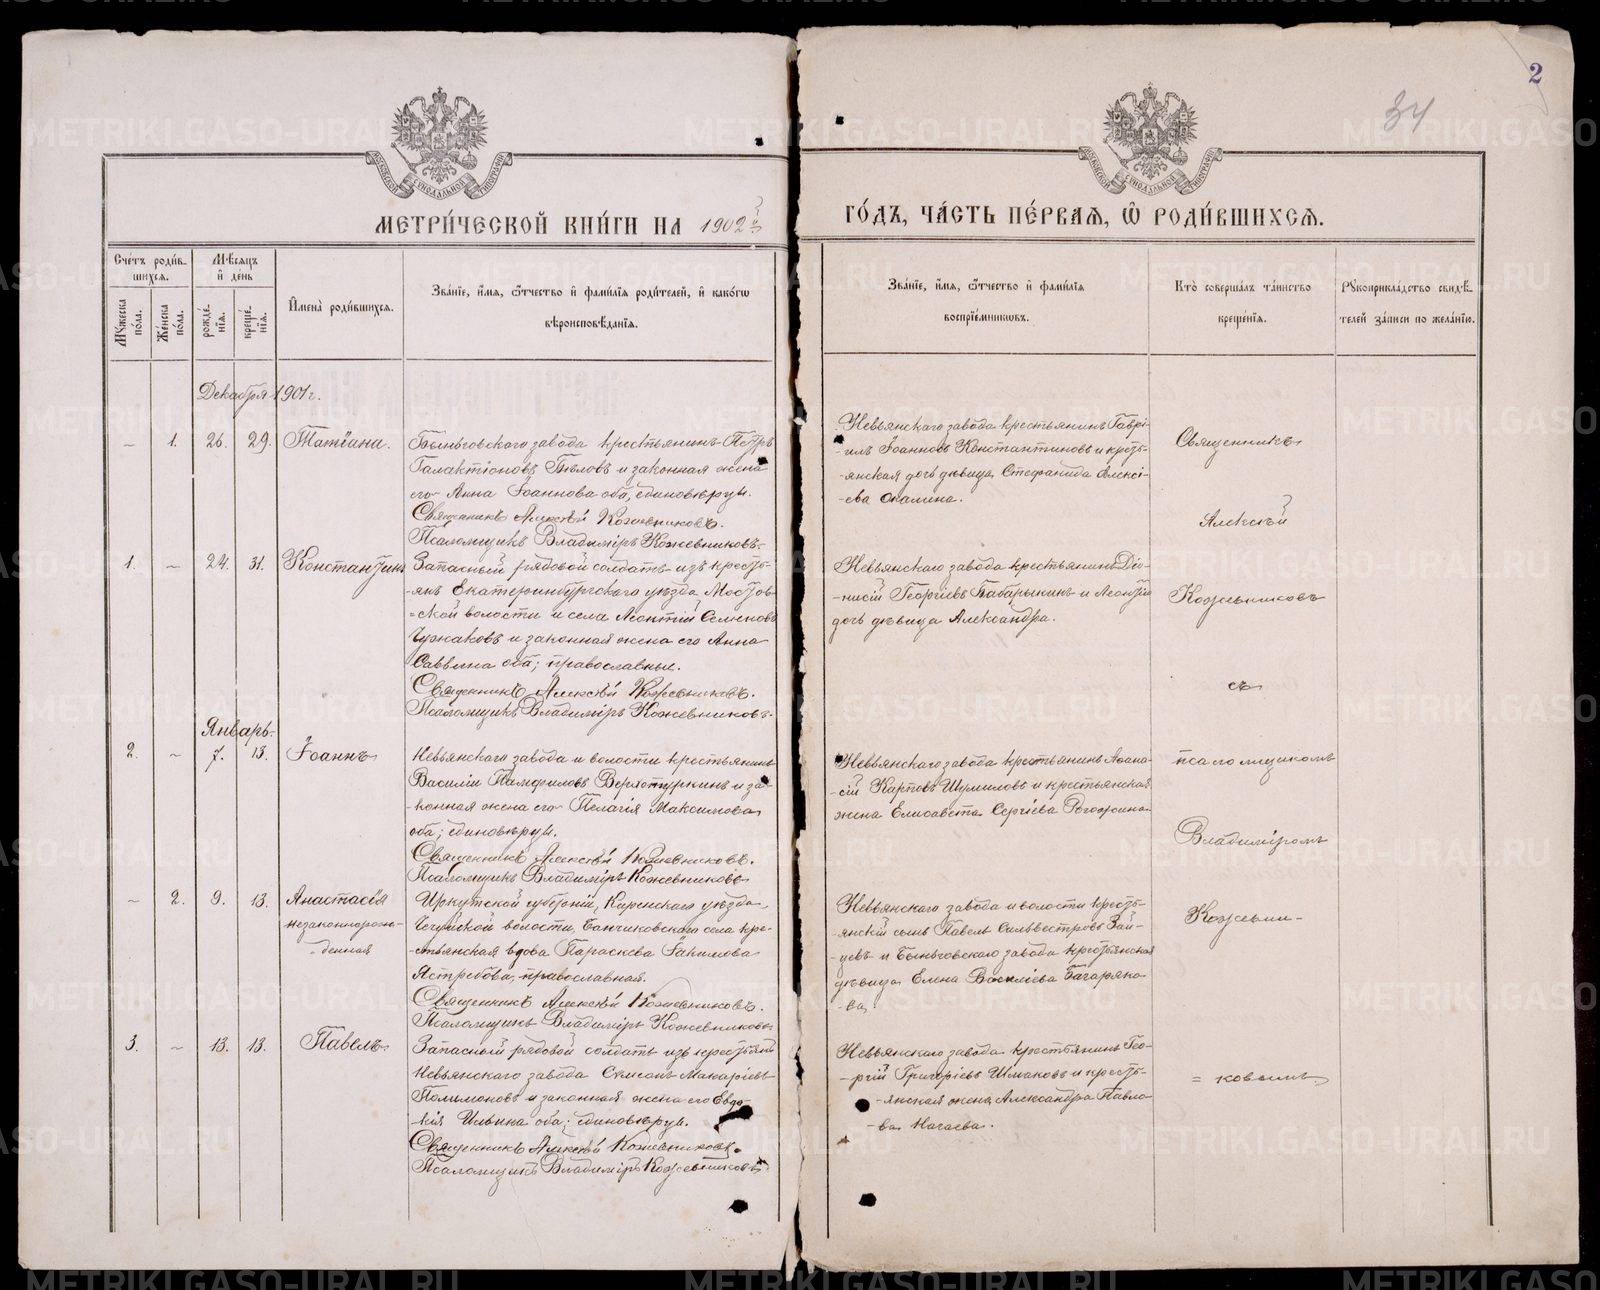 2
34
МЕТРИ́ЧЕСКОЙ КНИ́ГИ НА 1902й
ГО́ДЪ, ЧА́СТЬ ПЕ́РВАѦ, Ѡ РОДИ́ВШИХСѦ.
Счетъ роди́в-
шихсѧ.
Мꙋжеска по́ла.
Же́нска по́ла.
Мѣ́сѧцъ
и де́нь
рожде́-
нїѧ.
креще́-
нїѧ.
Имена̀ роди́вшихсѧ.
Зва́нїе, и́мѧ, ѻ́тчество и фами́лїѧ роди́телей, и како́гѡ
вѣроисповѣ́данїѧ.
Зва́нїе, и́мѧ, ѻ́тчество и фами́лїѧ
воспрїе́мникѡвъ.
Кто̀ соверша́лъ та́инство
креще́нїѧ.
Рꙋкоприкла́дство свидѣ́-
телей за́писи по жела́нїю.
Декабря 1901 г.
– 1. 26. 29. Татiана.
Быньговскаго завода крестьянинъ Петръ
Галактiоновъ Бѣловъ и законная жена
его Анна Iоаннова оба, единовѣрцы.
Священникъ Алексѣй Кожевниковъ.
Псаломщикъ Владимiръ Кожевниковъ.
Невьянскаго завода крестьянинъ Гаврi-
-илъ Iоанновъ Константиновъ и кресть-
-янская дочь дѣвица Стефанида Алексi-
-ева
1. – 24. 31. Константинъ
Запасный рядовой солдатъ изъ кресть-
-янъ Екатеринбургскаго уѣзда Мостов-
-ской волости и села Леонтiй Семеновъ
Чужаковъ и законная жена его Анна
Саввина оба; православные.
Священникъ Алексѣй Кожевниковъ.
Псаломщикъ Владимiръ Кожевниковъ.
Невьянскаго завода крестьянинъ Дiо-
-нисiй Георгiевъ Бабарыкинъ и
дочь дѣвица Александра.
Январь.
2. – 7. 13. Iоаннъ
Невьянскаго завода и волости крестьянинъ
Василiй Памфиловъ Верхотуркинъ и за-
-конная жена его Пелагiя Максимова
оба; единовѣрцы.
Священникъ Алексѣй Кожевниковъ.
Псаломщикъ Владимiръ Кожевниковъ
Невьянскаго завода крестьянинъ Афана-
-сiй Карповъ Шумиловъ и крестьянская
жена Елисавета Сергiева Рогожина
– 2. 9. 13. Анастасiя
незаконнорож-
-денная
Иркутской губернiи, Киренскаго уѣзда,
волости, Банщиковскаго села кре-
-стьянская вдова Параскева Iакимова
Ястребова, православная.
Священникъ Алексѣй Кожевниковъ.
Псаломщикъ Владимiръ Кожевниковъ
Невьянскаго завода и волости кресть-
-янскiй сынъ Павелъ Сильвестровъ Зай-
-цевъ и Быньговскаго завода крестьянская
дѣвица Елена Василiева Багаряко-
-ва
3. – 13. 13. Павелъ
Запасный рядовой солдатъ изъ крестьянъ
Невьянскаго завода Симеонъ Макарiевъ
Полимоновъ и законная жена его Евдо-
-кiя Ильина оба; единовѣрцы.
Священникъ Алексѣй Кожевниковъ.
Псаломщикъ Владимiръ Кожевниковъ
Невьянскаго завода крестьянинъ Геор-
-гiй Григорiевъ Шмаковъ и кресть-
-янская жена Александра Павло-
-ва Нагаева.
Священникъ
Алексѣй
Кожевниковъ
съ
псаломщикомъ
Владимiромъ
Кожевни-
= ковымъ
METRIKI.GASO-URAL.RU